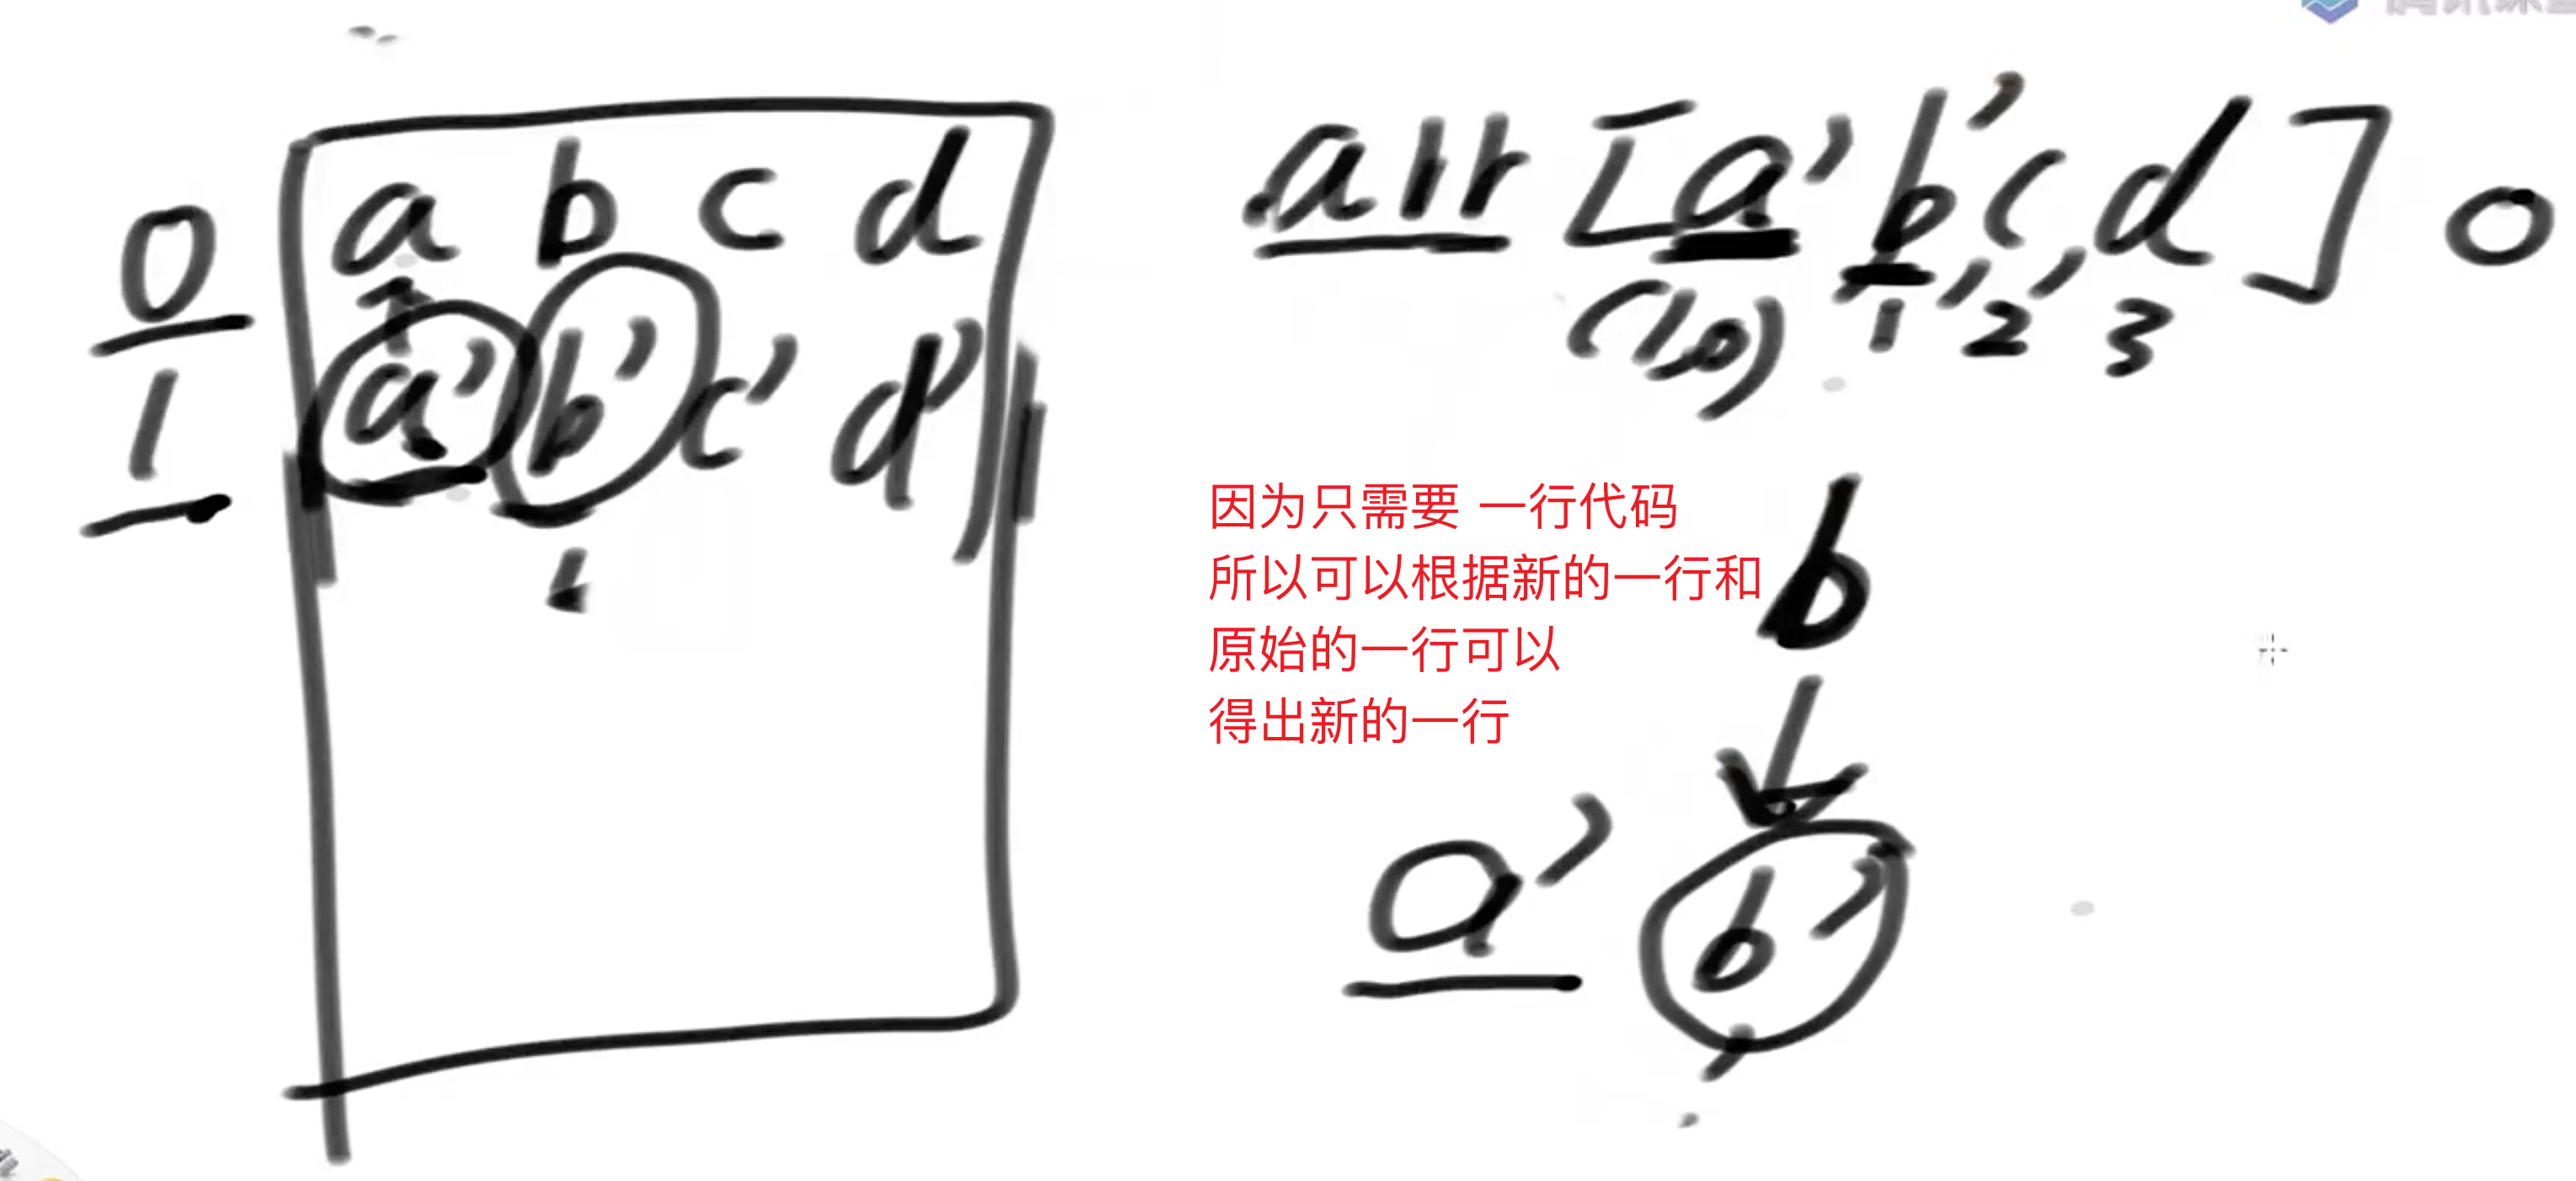 0 a b c d
1 a' b' c' d'
arr [a' b' c d] 0
(1,0) 1 2 3
因为只需要 一行代码
所以可以根据新的一行和
原始的一行可以
得出新的一行
b
a' b'